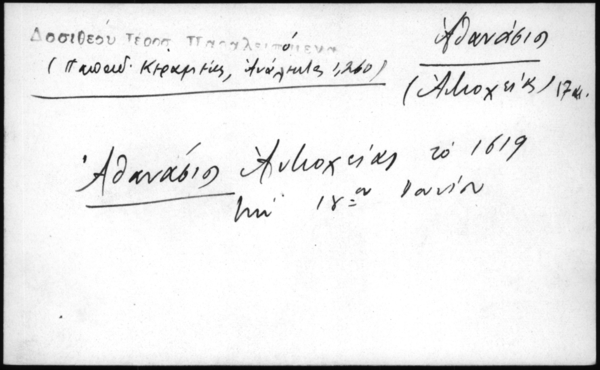 Δοσιθέου Ἱεροσ. Παραλειπόμενα
(Παπαδ. Κεραμεύς, Ἀνάλεκτα 1,260)
Ἀθανάσιος
(Ἀντιοχείας) 17 αι.
Ἀθανάσιος Ἀντιοχείας τὸ 1619
18ην Ἰουνίου